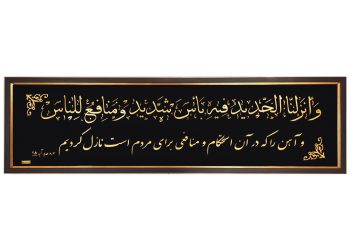 وَأَنزَلنَا الحَدِيدَ فِيهِ بَأسٌ شَدِيدٌ وَمَنَافِعُ لِلنَّاسِ
و آهن را که در آن استحکام و منافعی برای مردم است نازل کردیم